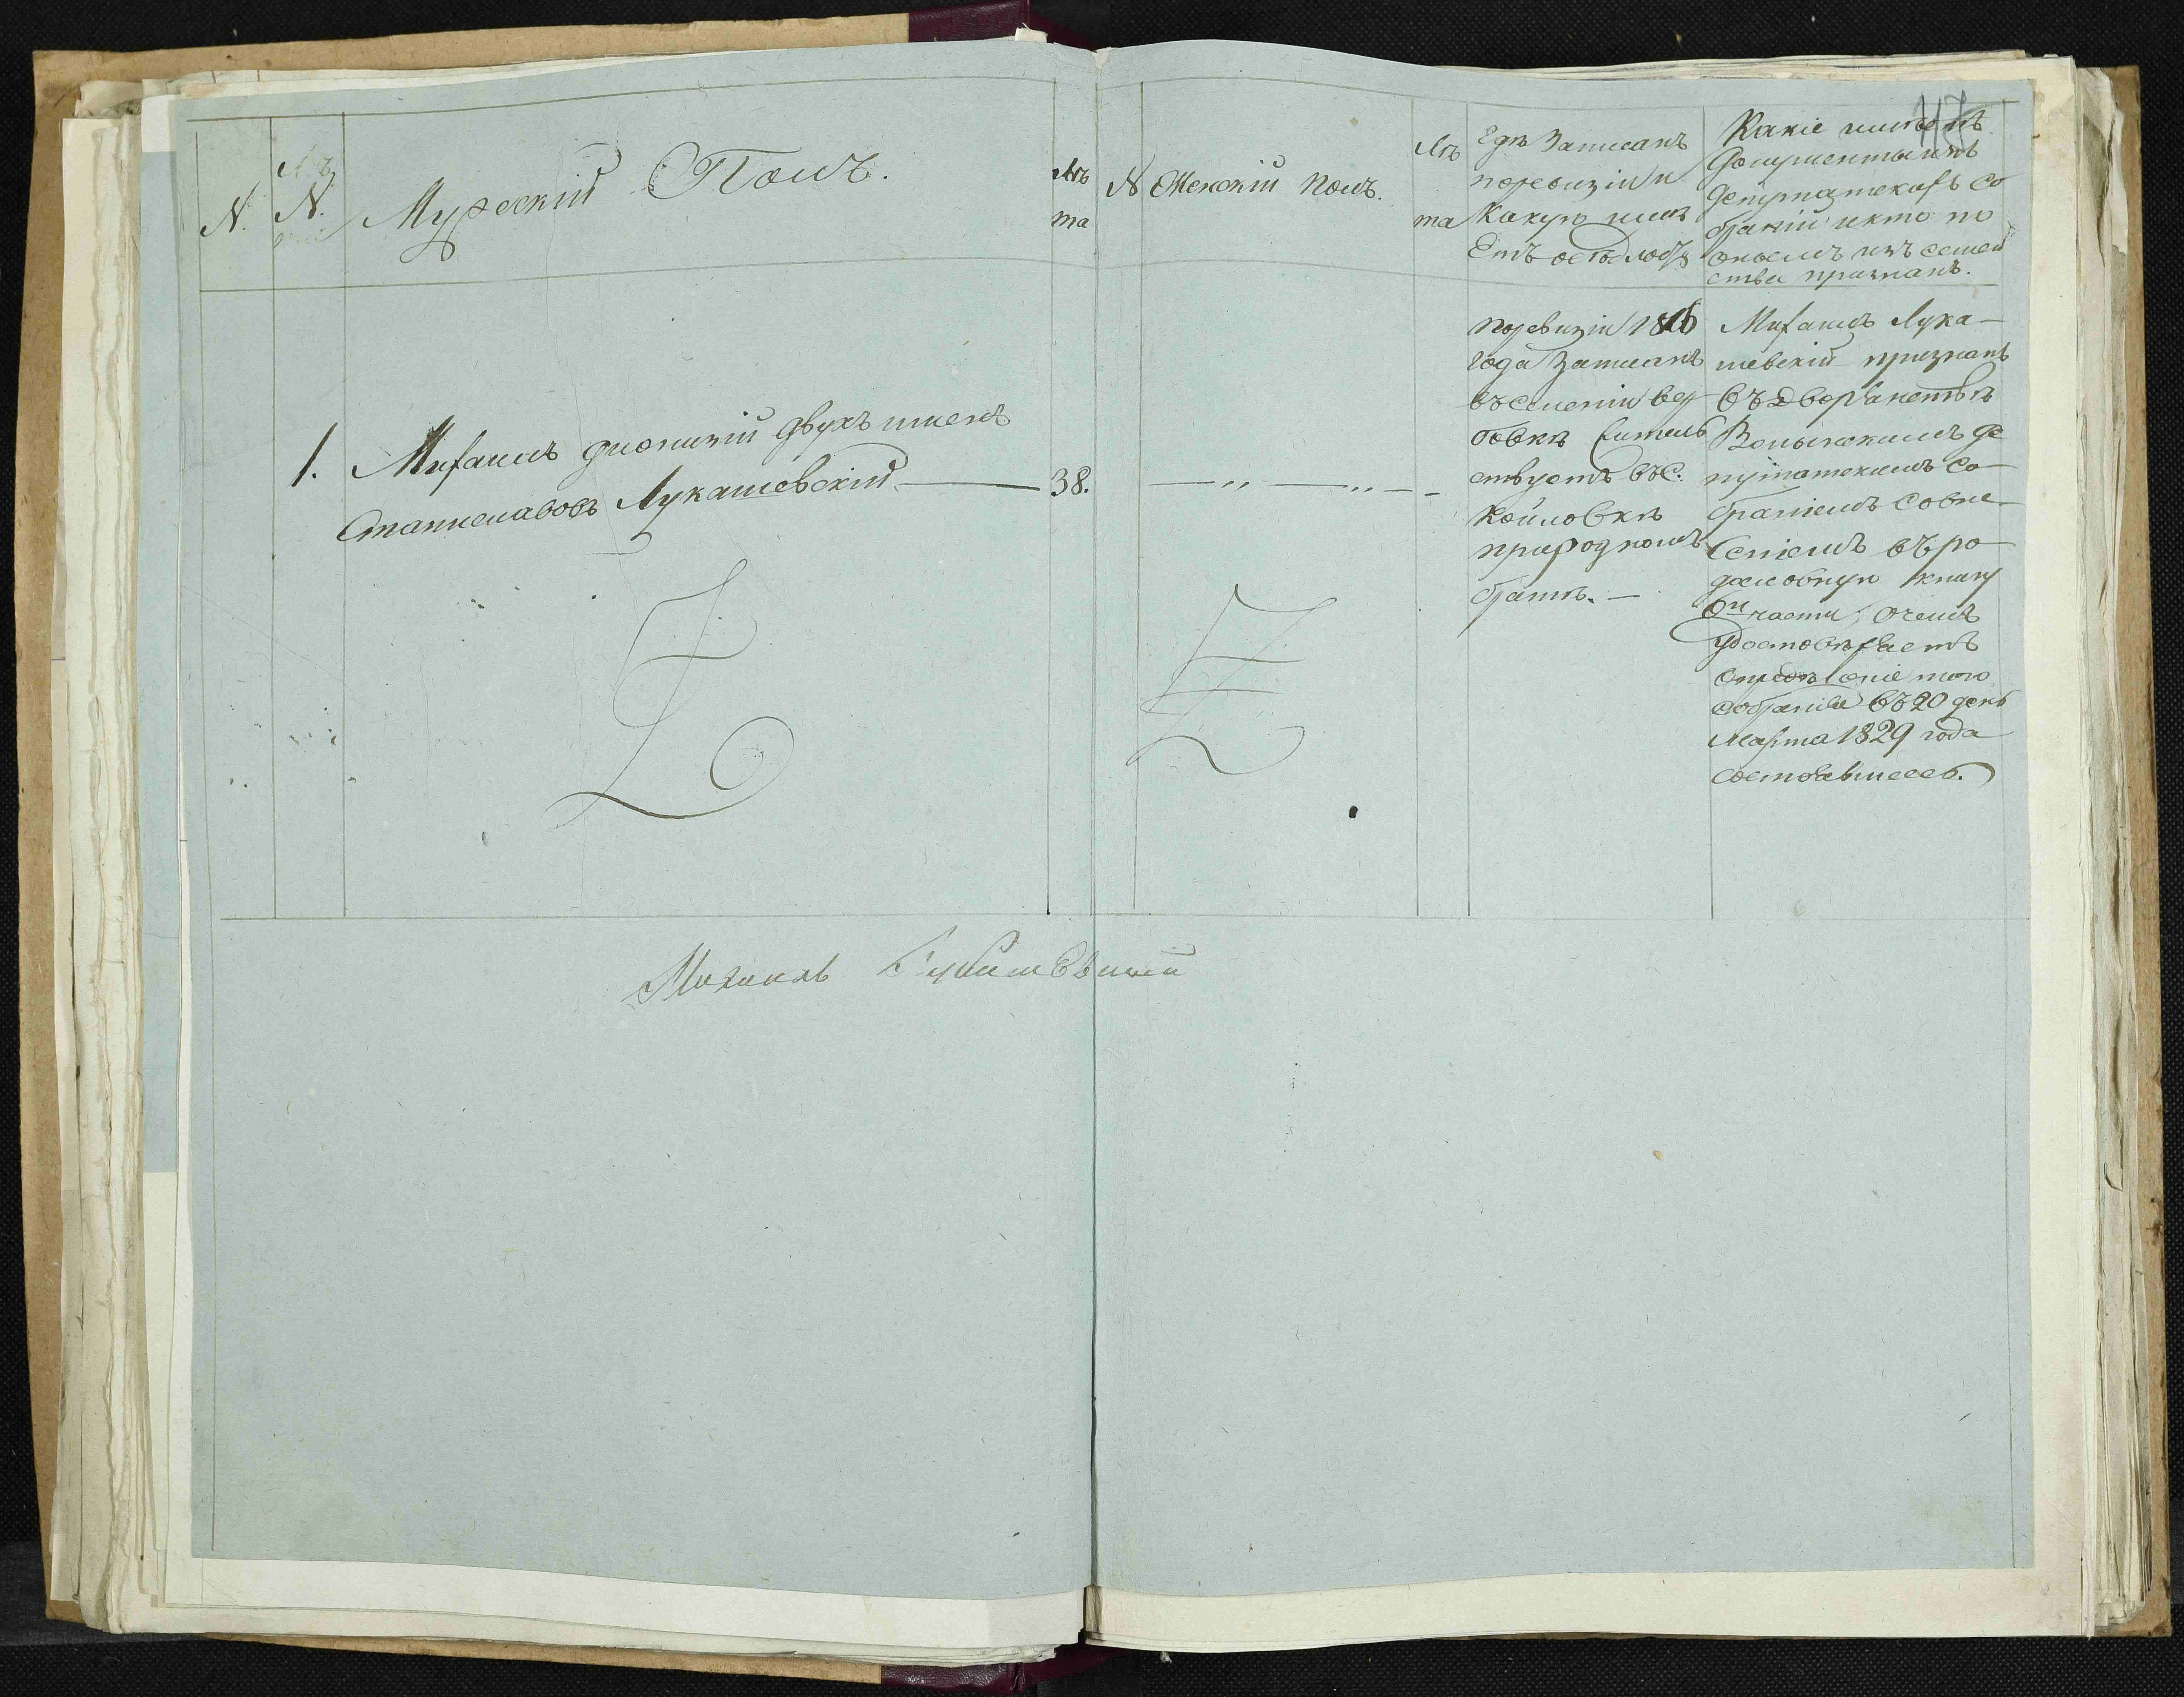 N.
N.
Мужескій Полъ.
Лѣ
та
N Женскій Полъ.
Лѣ
та
Гдѣ Записанъ
поревизіи и
какую имѣ
Етъ оседлость
Какіе имѣетъ
документы изъ
депутатскахъ со
браній икто по
онымъ изъ семей
ства признанъ.
1. Михаилъ дионизій двухъ именъ
Станиславовъ Лукашевскій 38.
поревизіи 1816
года Записанъ
въселеніи вер
бовкѣ Жител
ствуетъ въ С.
Койловкѣ
природномъ
братѣ.
Михаилъ Лука-
шевскій признанъ
въ Дворянствѣ
Волынскимъ де
путатскимъ Со
браніемъ совне-
сеніемъ въ ро
дословную книгу
части, очемъ
удостовѣряетъ
опредѣленіе того
собранія въ 20 день
Марта 1829 года
состоявшееся.
Михаилъ